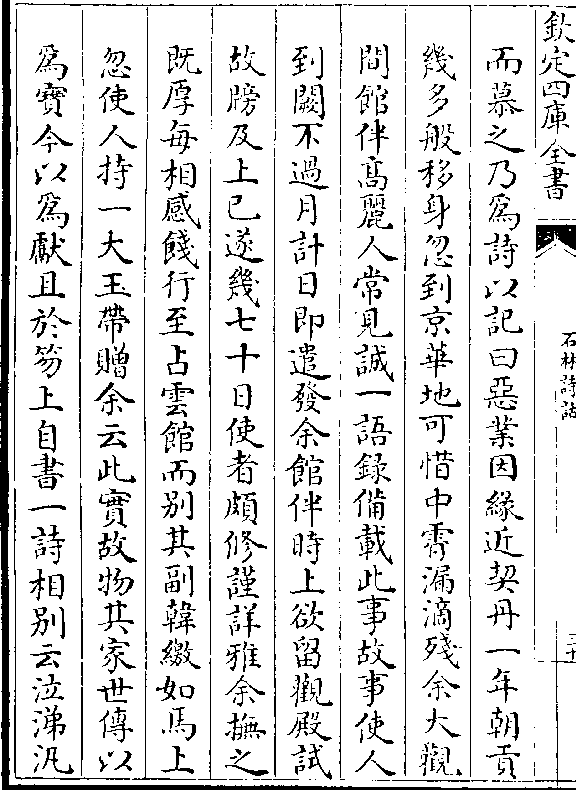 欽定四庫全書
石林詩話
三十
而慕之乃為詩以記曰惡業因緣近契丹一年朝貢
幾多般移身忽到京華地可惜中霄漏滴殘余大觀
間館伴髙麗人常見誠一語錄備載此事故事使人
到闕不過月計日即遣發余館伴時上欲留觀殿試
故牓及上已遂幾七十日使者頗修謹詳雅余撫之
既厚每相感餞行至占雲館而别其副韓繳如馬上
忽使人持一大王帶贈余云此實故物其家世傳以
為寳今以為獻且於笏上自書一詩相别云泣涕汍